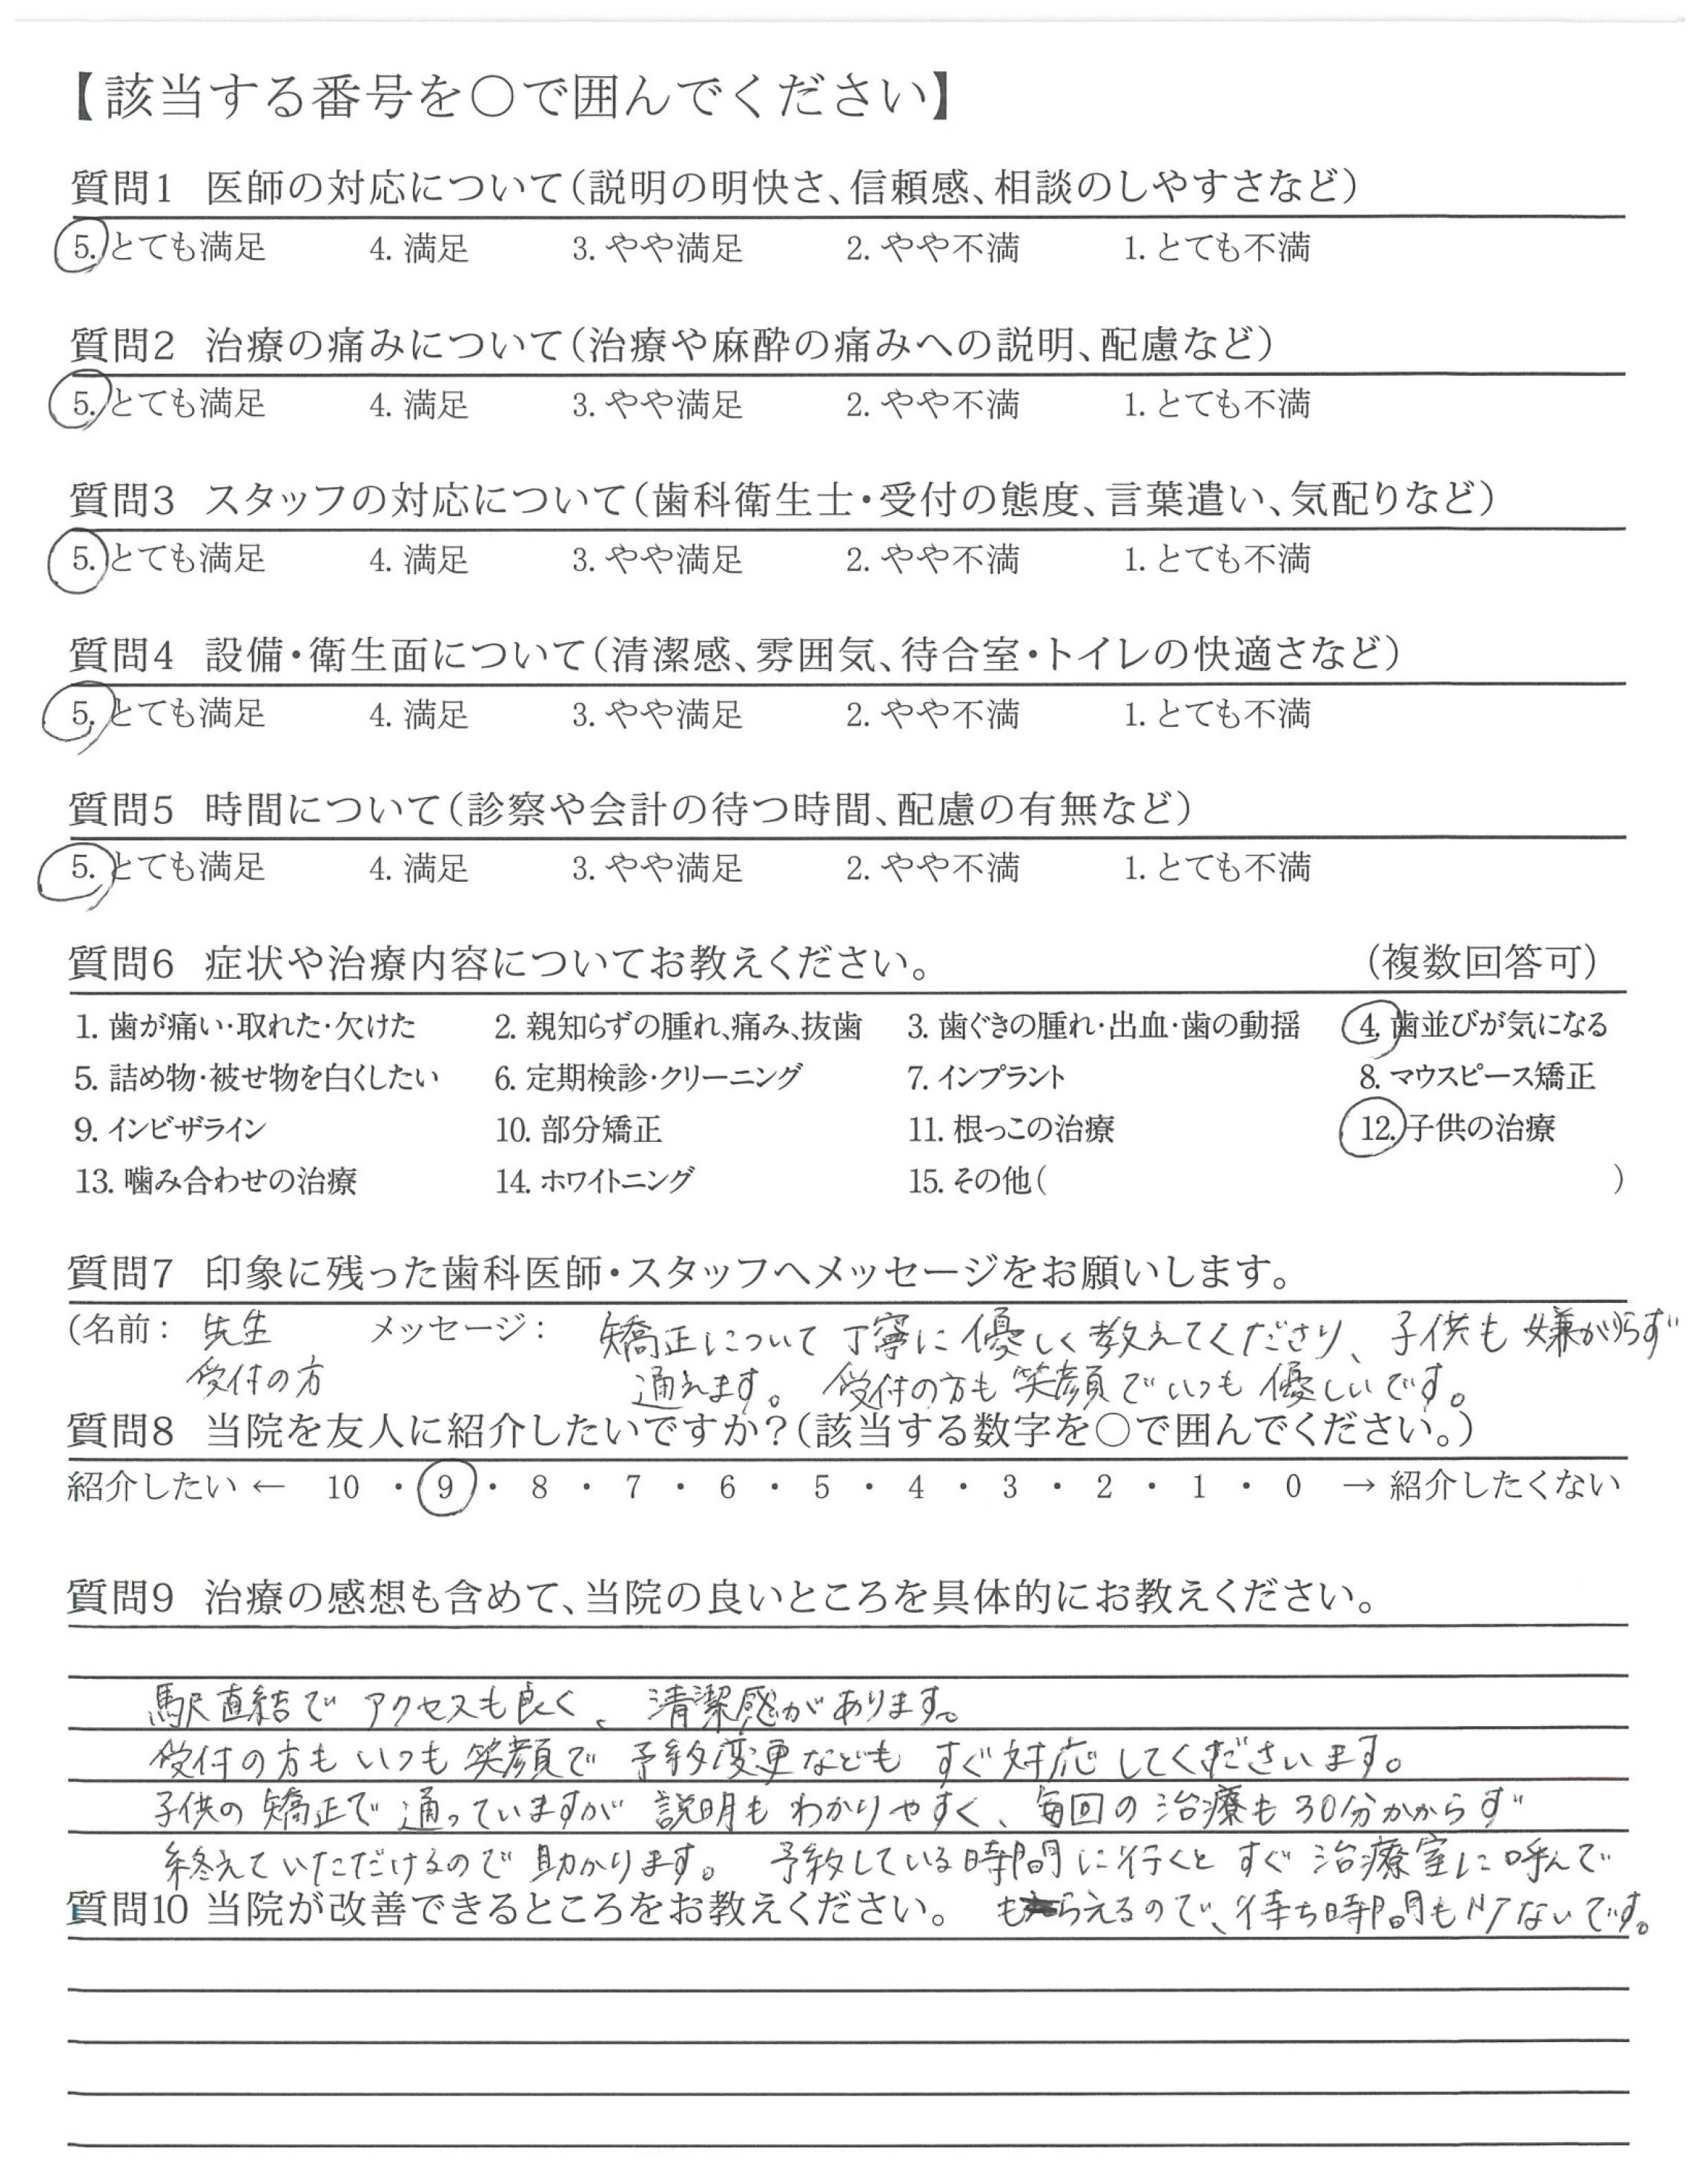 【該当する番号を○で囲んでください】
質問1 医師の対応について(説明の明快さ、信頼感、相談のしやすさなど)
5. とても満足 4. 満足 3. やや満足 2. やや不満 1. とても不満
質問2 治療の痛みについて(治療や麻酔の痛みへの説明、配慮など)
5. とても満足 4. 満足 3. やや満足 2. やや不満 1. とても不満
質問3 スタッフの対応について(歯科衛生士・受付の態度、言葉遣い、気配りなど)
5. とても満足 4. 満足 3. やや満足 2. やや不満 1. とても不満
質問4 設備・衛生面について(清潔感、雰囲気、待合室・トイレの快適さなど)
5. とても満足 4. 満足 3. やや満足 2. やや不満 1. とても不満
質問5 時間について(診察や会計の待つ時間、配慮の有無など)
5. とても満足 4. 満足 3. やや満足 2. やや不満 1. とても不満
質問6 症状や治療内容についてお教えください。 (複数回答可)
1. 歯が痛い・取れた・欠けた 2. 親知らずの腫れ、痛み、抜歯 3. 歯ぐきの腫れ・出血・歯の動揺 4. 歯並びが気になる
5. 詰め物・被せ物を白くしたい 6. 定期検診・クリーニング 7. インプラント 8. マウスピース矯正
9. インビザライン 10. 部分矯正 11. 根っこの治療 12. 子供の治療
13. 噛み合わせの治療 14. ホワイトニング 15. その他( )
質問7 印象に残った歯科医師・スタッフへメッセージをお願いします。
(名前: 先生 メッセージ: 矯正について丁寧に優しく教えてくださり、子供も嫌がらず
受付の方 通えます。 受付の方も笑顔でいつも優しいです。
質問8 当院を友人に紹介したいですか?(該当する数字を○で囲んでください。)
紹介したい ← 10 ・ 9 ・ 8 ・ 7 ・ 6 ・ 5 ・ 4 ・ 3 ・ 2 ・ 1 ・ 0 → 紹介したくない
質問9 治療の感想も含めて、当院の良いところを具体的にお教えください。
駅直結でアクセスも良く、清潔感があります。
受付の方もいつも笑顔で予約変更などもすぐ対応してくださいます。
子供の矯正で通っていますが説明もわかりやすく、毎回の治療も30分かからず
終えていただけるので助かります。 予約している時間に行くとすぐ治療室に呼んで
質問10 当院が改善できるところをお教えください。 もらえるので、待ち時間も少ないです。